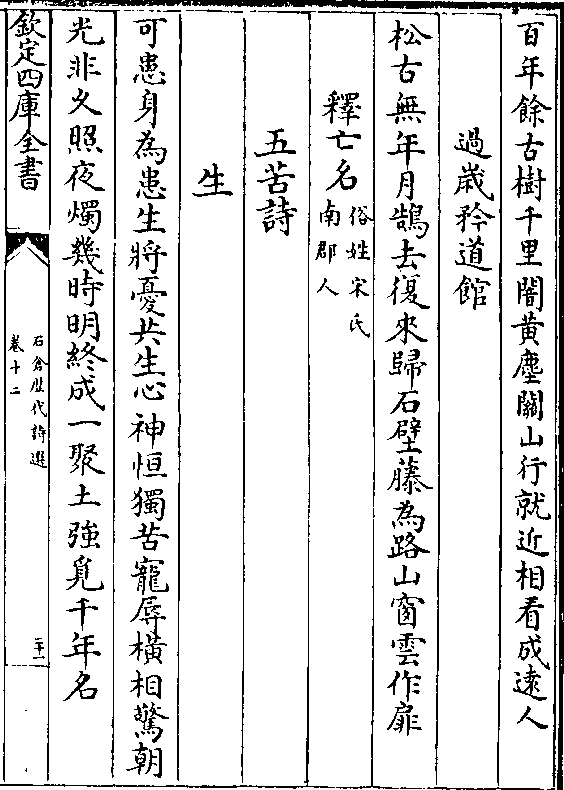 百年餘古樹千里闇黃塵關山行就近相看成遠人
過歲矜道館
松古無年月鵠去復來歸石壁藤為路山窗雲作扉
釋亡名俗姓宋氏
南郡人
五苦詩
生
可患身為患生將憂共生心神恒獨苦寵辱橫相驚朝
光非久照夜燭幾時明終成一聚土強覓千年名
欽定四庫全書
石倉歷代詩選
卷十二
二十一